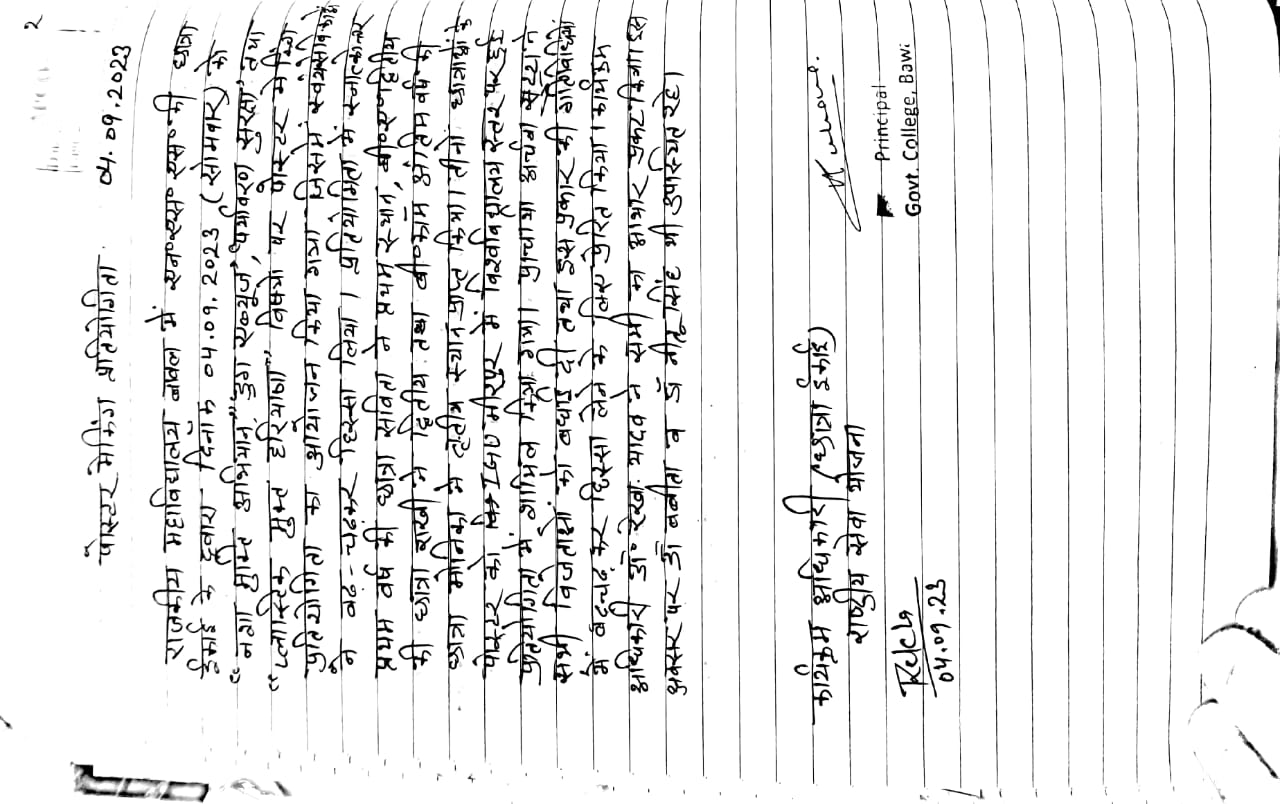 2
पोस्टर मेकिंग प्रतियोगिता 04.09.2023
राजकीय महाविद्यालय बावल में एन०एस०एस० की छात्रा
इकाई के द्वारा दिनांक 04.09.2023 (सोमवार) को
"नशा मुक्ति अभियान" "ड्रग एब्यूज", "पर्यावरण सुरक्षा" तथा
"प्लास्टिक मुक्त हरियाणा" विषयों पर पोस्टर मेकिंग
प्रतियोगिता का आयोजन किया गया। जिसमें स्वयंसेविकाओं
ने बढ़-चढ़कर हिस्सा लिया। प्रतियोगिता में स्नातकोत्तर
प्रथम वर्ष की छात्रा सविता ने प्रथम स्थान, द्वितीय
की छात्रा राखी ने द्वितीय तथा बी०कॉम अंतिम वर्ष की
छात्रा मोनिका ने तृतीय स्थान प्राप्त किया। तीनों छात्राओं के
पोस्टर को IGU मीरपुर में विश्वविद्यालय स्तर पर हुई
प्रतियोगिता में शामिल किया गया। प्राचार्या ने
सभी विजेताओं को बधाई दी तथा इस प्रकार की गतिविधियों
में बढ़-चढ़ कर हिस्सा लेने के लिए प्रेरित किया। कार्यक्रम
अधिकारी डॉ० रेखा यादव ने सभी का आभार प्रकट किया। इस
अवसर पर डॉ व डॉ सिंह भी उपस्थित रहे।
कार्यक्रम अधिकारी (छात्रा इकाई)
राष्ट्रीय सेवा योजना
04.09.23
Principal
Govt. College, Bawl